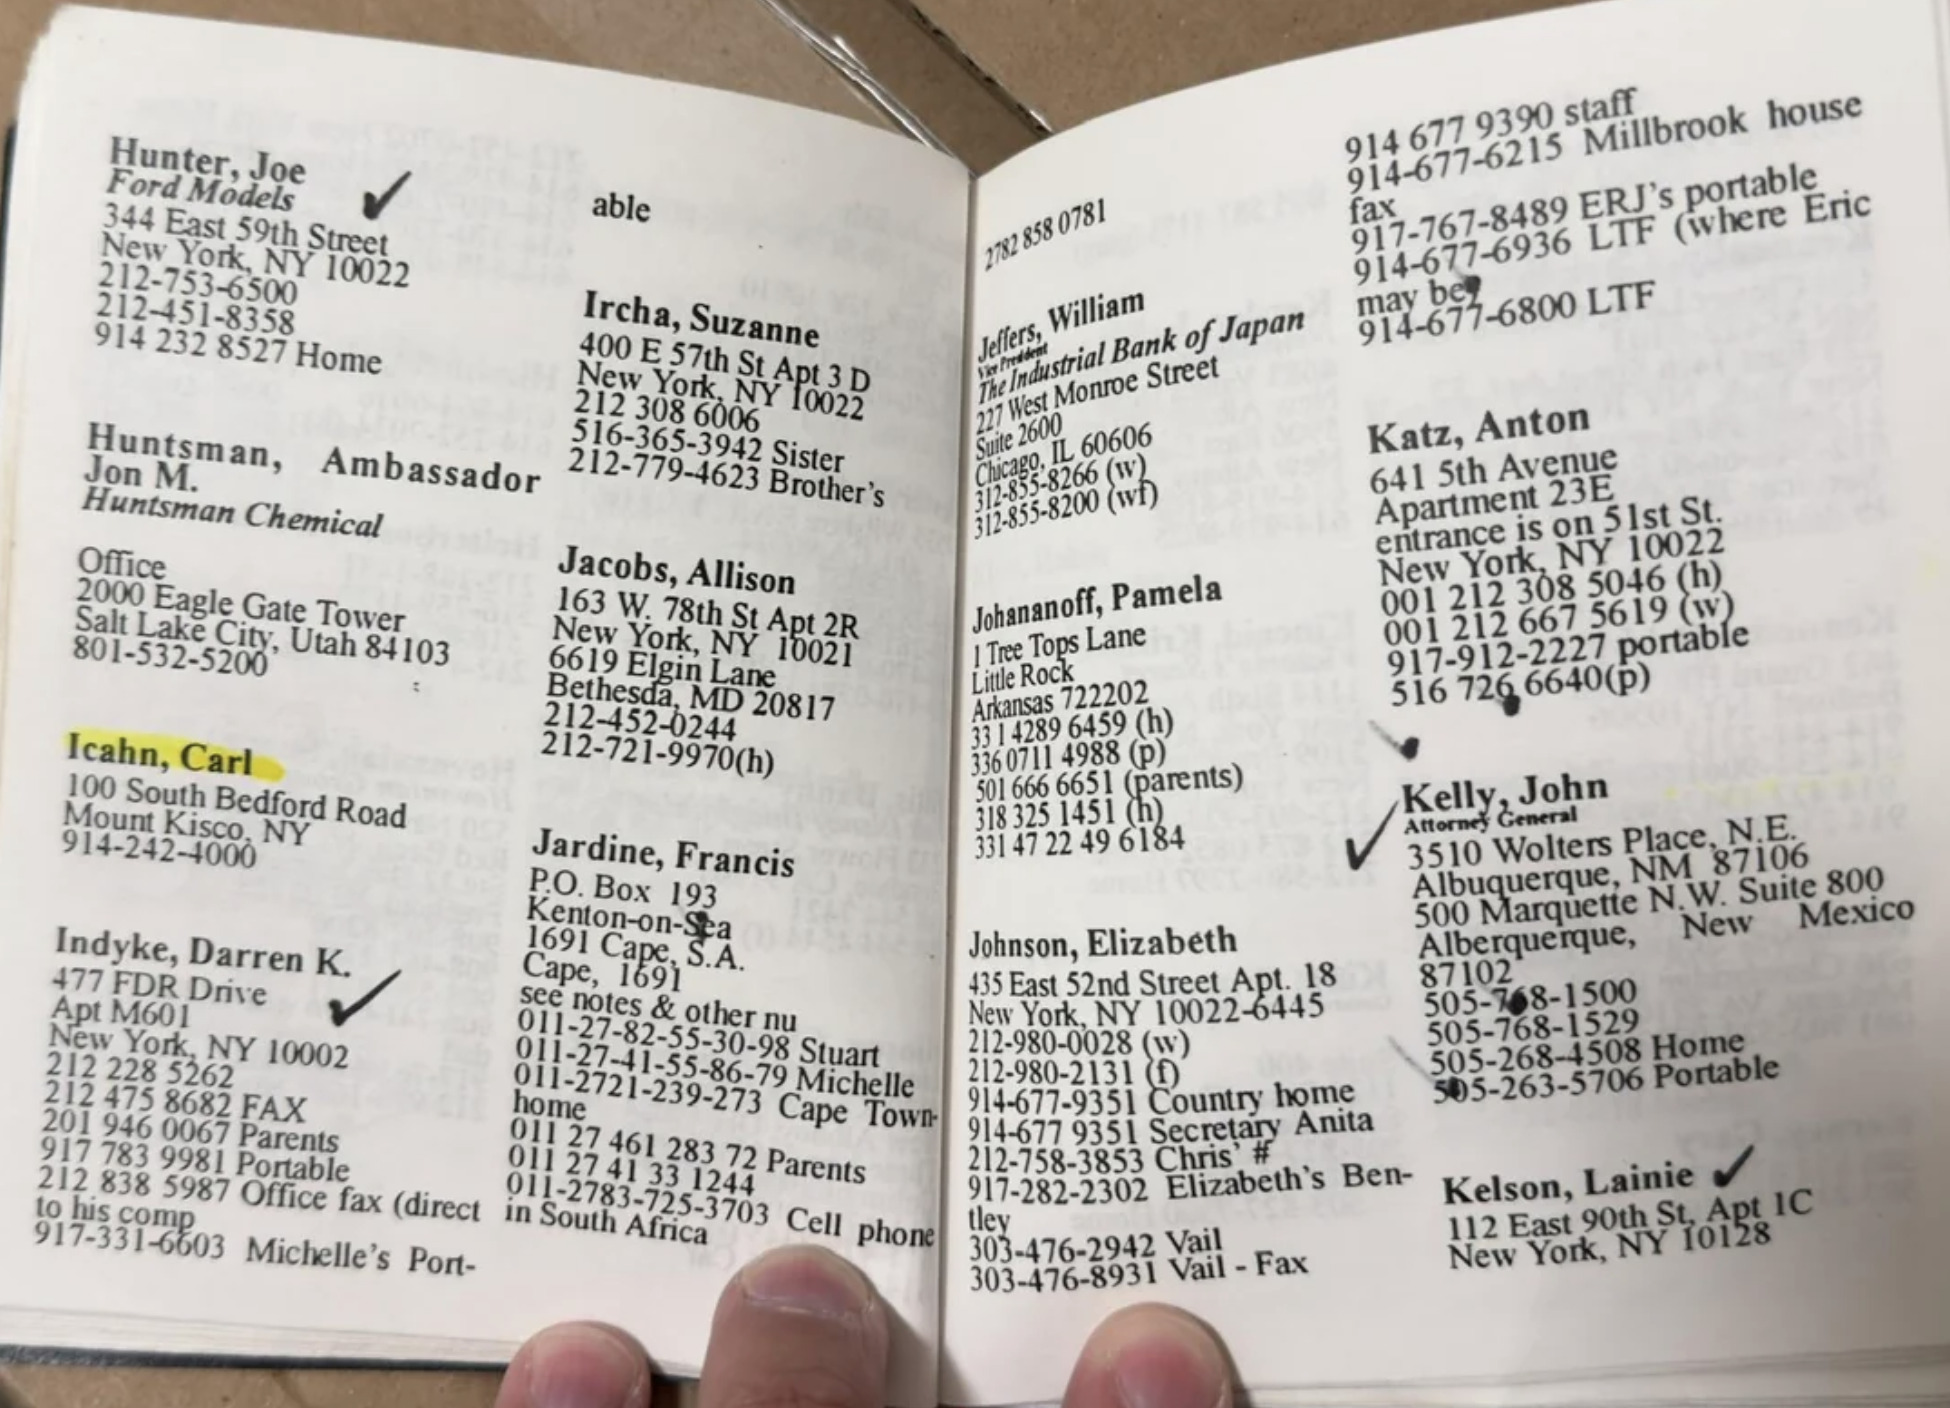 Hunter, Joe
Ford Models
344 East 59th Street
New York, NY 10022
212-753-6500
212-451-8358
914 232 8527 Home
Huntsman, Ambassador
Jon M.
Huntsman Chemical
Office
2000 Eagle Gate Tower
Salt Lake City, Utah 84103
801-532-5200
Icahn, Carl
100 South Bedford Road
Mount Kisco, NY
914-242-4000
Indyke, Darren K.
477 FDR Drive
Apt M601
New York, NY 10002
212 228 5262
212 475 8682 FAX
201 946 0067 Parents
917 783 9981 Portable
212 838 5987 Office fax (direct
to his comp
917-331-6603 Michelle's Port-
able
Ircha, Suzanne
400 E 57th St Apt 3 D
New York, NY 10022
212 308 6006
516-365-3942 Sister
212-779-4623 Brother's
Jacobs, Allison
163 W. 78th St Apt 2R
New York, NY 10021
6619 Elgin Lane
Bethesda, MD 20817
212-452-0244
212-721-9970(h)
Jardine, Francis
P.O. Box 193
Kenton-on-Sea
1691 Cape, S.A.
Cape, 1691
see notes & other nu
011-27-82-55-30-98 Stuart
011-27-41-55-86-79 Michelle
011-2721-239-273 Cape Town-
home
011 27 461 283 72 Parents
011 27 41 33 1244
011-2783-725-3703 Cell phone
in South Africa
2782 858 0781
Jeffers, William
Vice President
The Industrial Bank of Japan
227 West Monroe Street
Suite 2600
Chicago, IL 60606
312-855-8266 (w)
312-855-8200 (wf)
Johananoff, Pamela
1 Tree Tops Lane
Little Rock
Arkansas 722202
33 1 4289 6459 (h)
336 0711 4988 (p)
501 666 6651 (parents)
318 325 1451 (h)
331 47 22 49 6184
Johnson, Elizabeth
435 East 52nd Street Apt. 18
New York, NY 10022-6445
212-980-0028 (w)
212-980-2131 (f)
914-677-9351 Country home
914-677 9351 Secretary Anita
212-758-3853 Chris' #
917-282-2302 Elizabeth's Ben-
tley
303-476-2942 Vail
303-476-8931 Vail - Fax
914 677 9390 staff
914-677-6215 Millbrook house
fax
917-767-8489 ERJ's portable
914-677-6936 LTF (where Eric
may be)
914-677-6800 LTF
Katz, Anton
641 5th Avenue
Apartment 23E
entrance is on 51st St.
New York, NY 10022
001 212 308 5046 (h)
001 212 667 5619 (w)
917-912-2227 portable
516 726 6640(p)
Kelly, John
Attorney General
3510 Wolters Place, N.E.
Albuquerque, NM 87106
500 Marquette N.W. Suite 800
Alberquerque, New Mexico
87102
505-768-1500
505-768-1529
505-268-4508 Home
505-263-5706 Portable
Kelson, Lainie
112 East 90th St, Apt 1C
New York, NY 10128